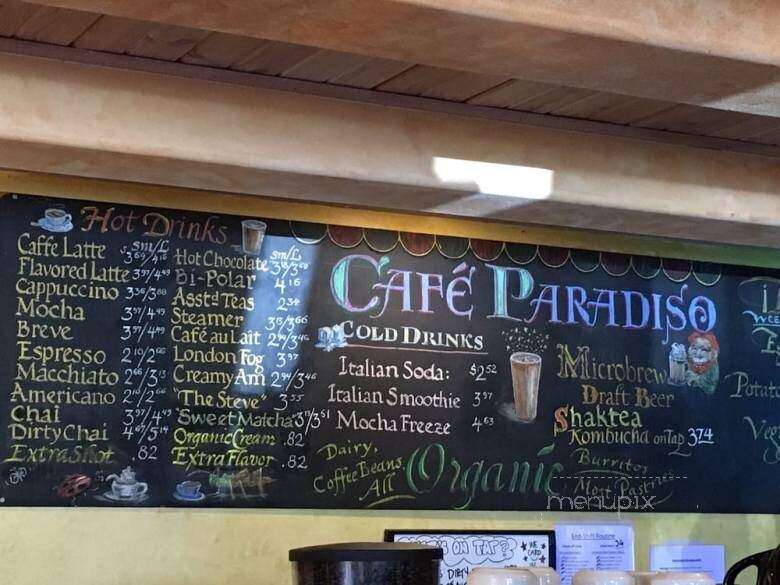 Hot Drinks
$ sm/L
Caffe Latte 3 69/4 16
Flavored Latte 3 97/4 49
Cappuccino 3 36/3 88
Mocha 3 97/4 49
Breve 3 97/4 99
Espresso 2 10/2 66
Macchiato 2 66/3 13
Americano 2 10/2 66
Chai 3 97/4 49
Dirty Chai 4 67/5 14
Extra Shot .82
sm/L
Hot Chocolate 3 18/3 68
Bi-Polar 4 16
Asstd Teas 2 34
Steamer 3 15/3 66
Café au Lait 2 94/3 46
London Fog 3 97
Creamy Am 2 94/3 46
"The Steve" 3 55
"Sweet Matcha" 3 17/3 51
Organic Cream .82
Extra Flavor .82
CAFÉ PARADISO
COLD DRINKS
Italian Soda: $2 52
Italian Smoothie 3 97
Mocha Freeze 4 63
Dairy,
Coffee Beans,
All
Organic
Microbrew
Draft Beer
Shaktea
Kombucha on Tap 374
Burritos
Most Pastries
Potat
Veg
menupix
ON TAP?
WE
CARD
End-Shift Routine